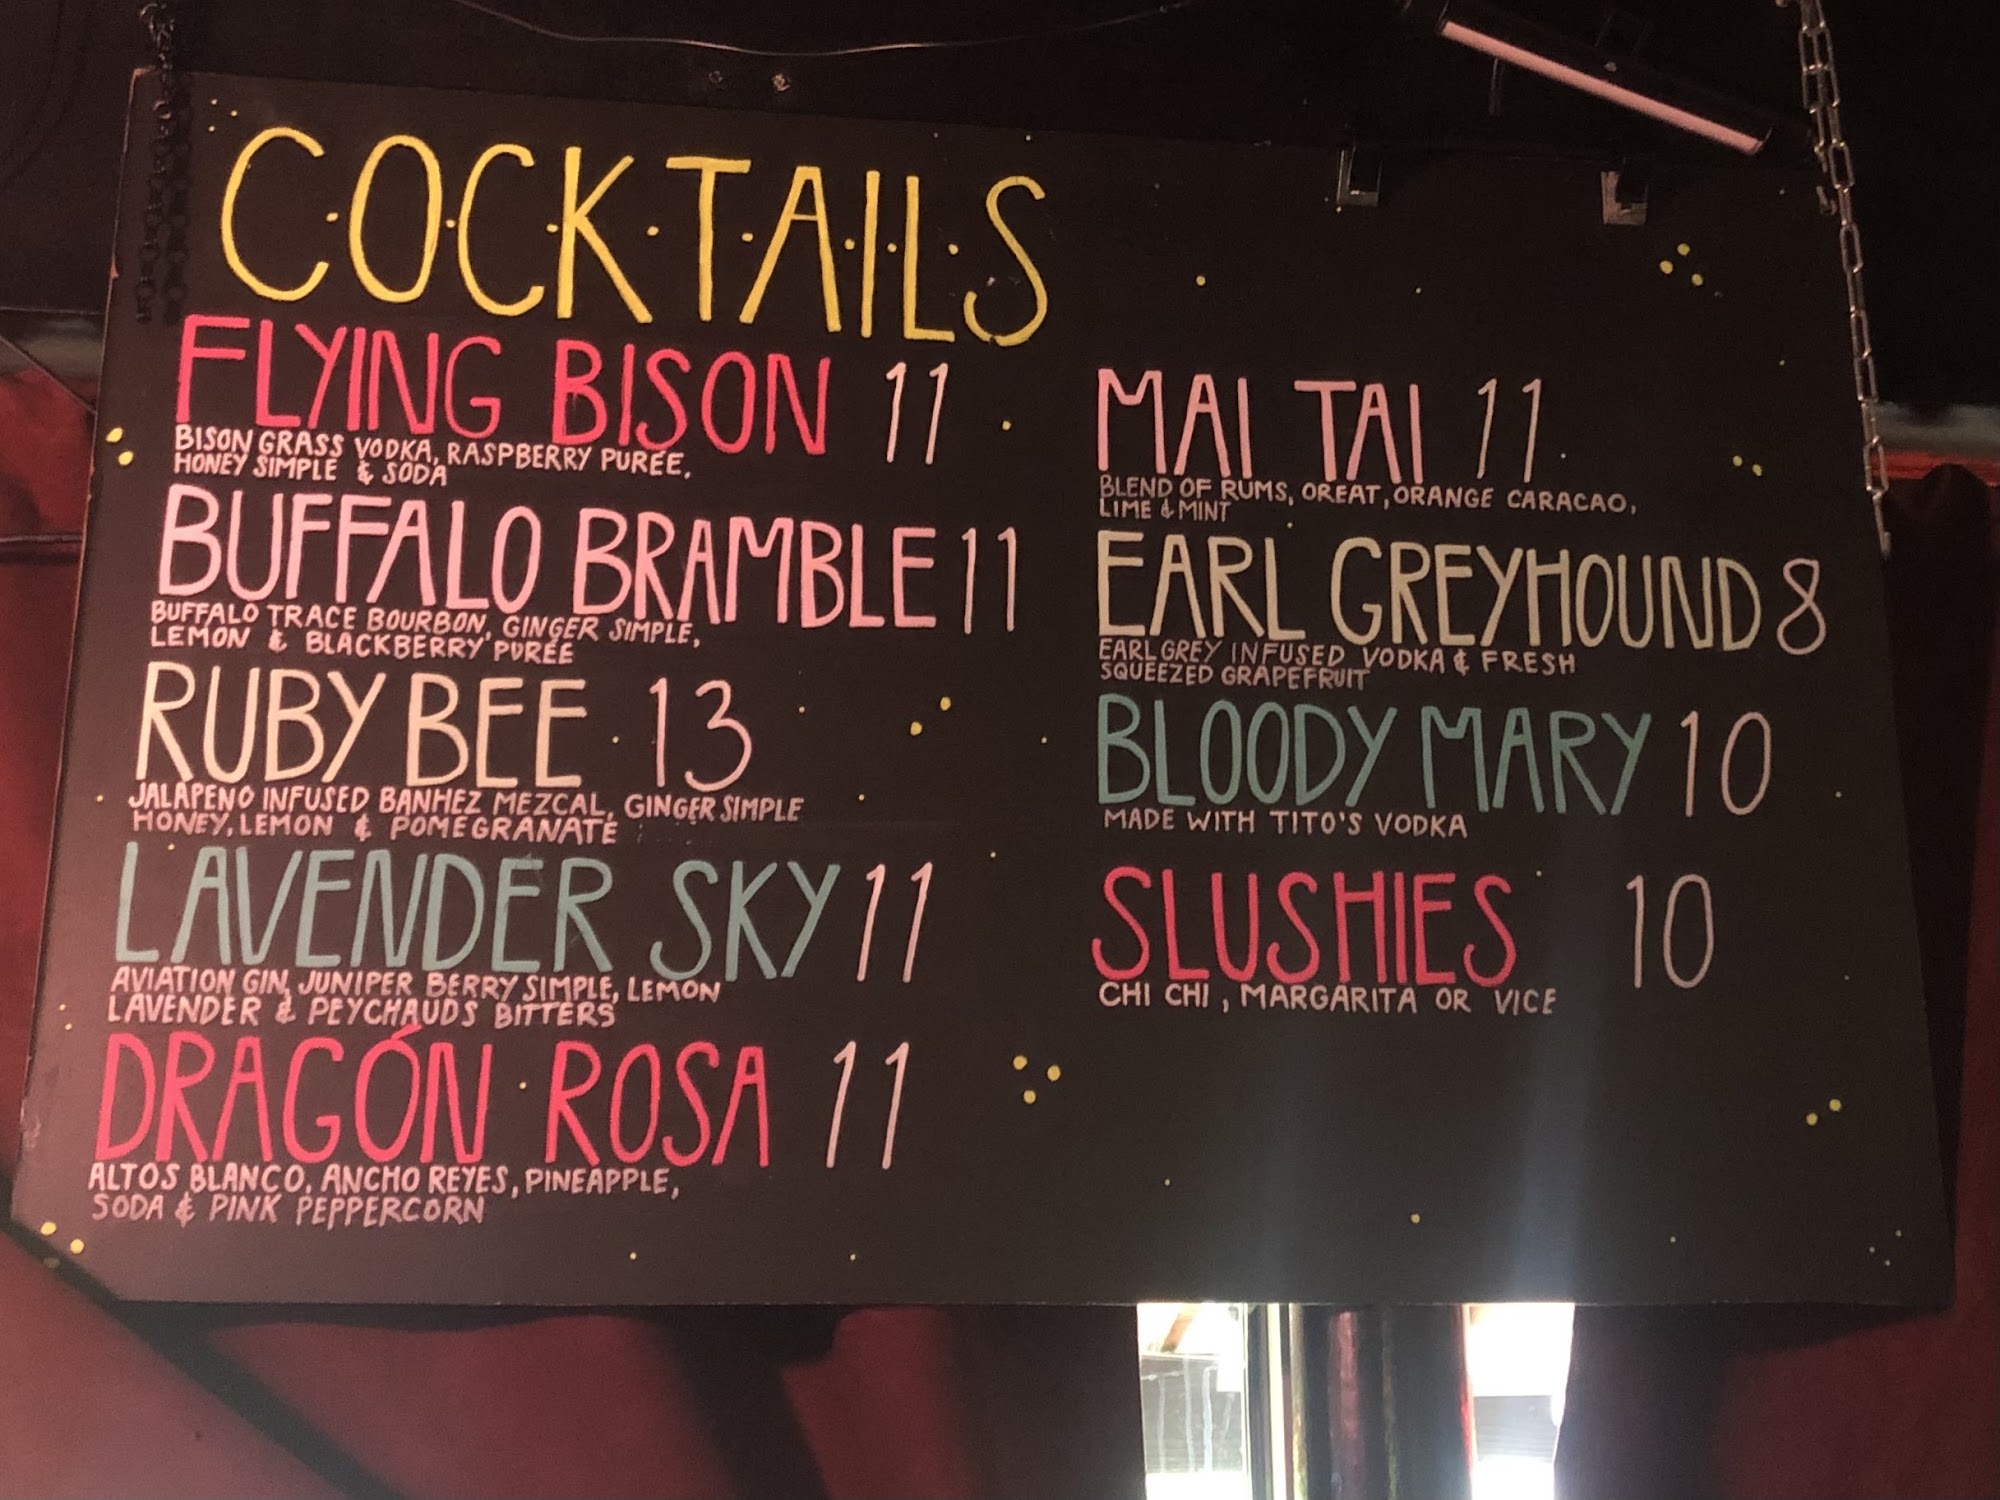 C·O·C·K·T·A·I·L·S
FLYING BISON 11
BISON GRASS VODKA, RASPBERRY PURÉE,
HONEY SIMPLE & SODA
BUFFALO BRAMBLE 11
BUFFALO TRACE BOURBON, GINGER SIMPLE,
LEMON & BLACKBERRY PURÉE
RUBY BEE 13
JALAPENO INFUSED BANHEZ MEZCAL, GINGER SIMPLE
HONEY, LEMON & POMEGRANATE
LAVENDER SKY 11
AVIATION GIN, JUNIPER BERRY SIMPLE, LEMON
LAVENDER & PEYCHAUDS BITTERS
DRAGÓN ROSA 11
ALTOS BLANCO, ANCHO REYES, PINEAPPLE,
SODA & PINK PEPPERCORN
MAI TAI 11
BLEND OF RUMS, OREAT, ORANGE CARACAO,
LIME & MINT
EARL GREYHOUND 8
EARL GREY INFUSED VODKA & FRESH
SQUEEZED GRAPEFRUIT
BLOODY MARY 10
MADE WITH TITO'S VODKA
SLUSHIES 10
CHI CHI, MARGARITA OR VICE